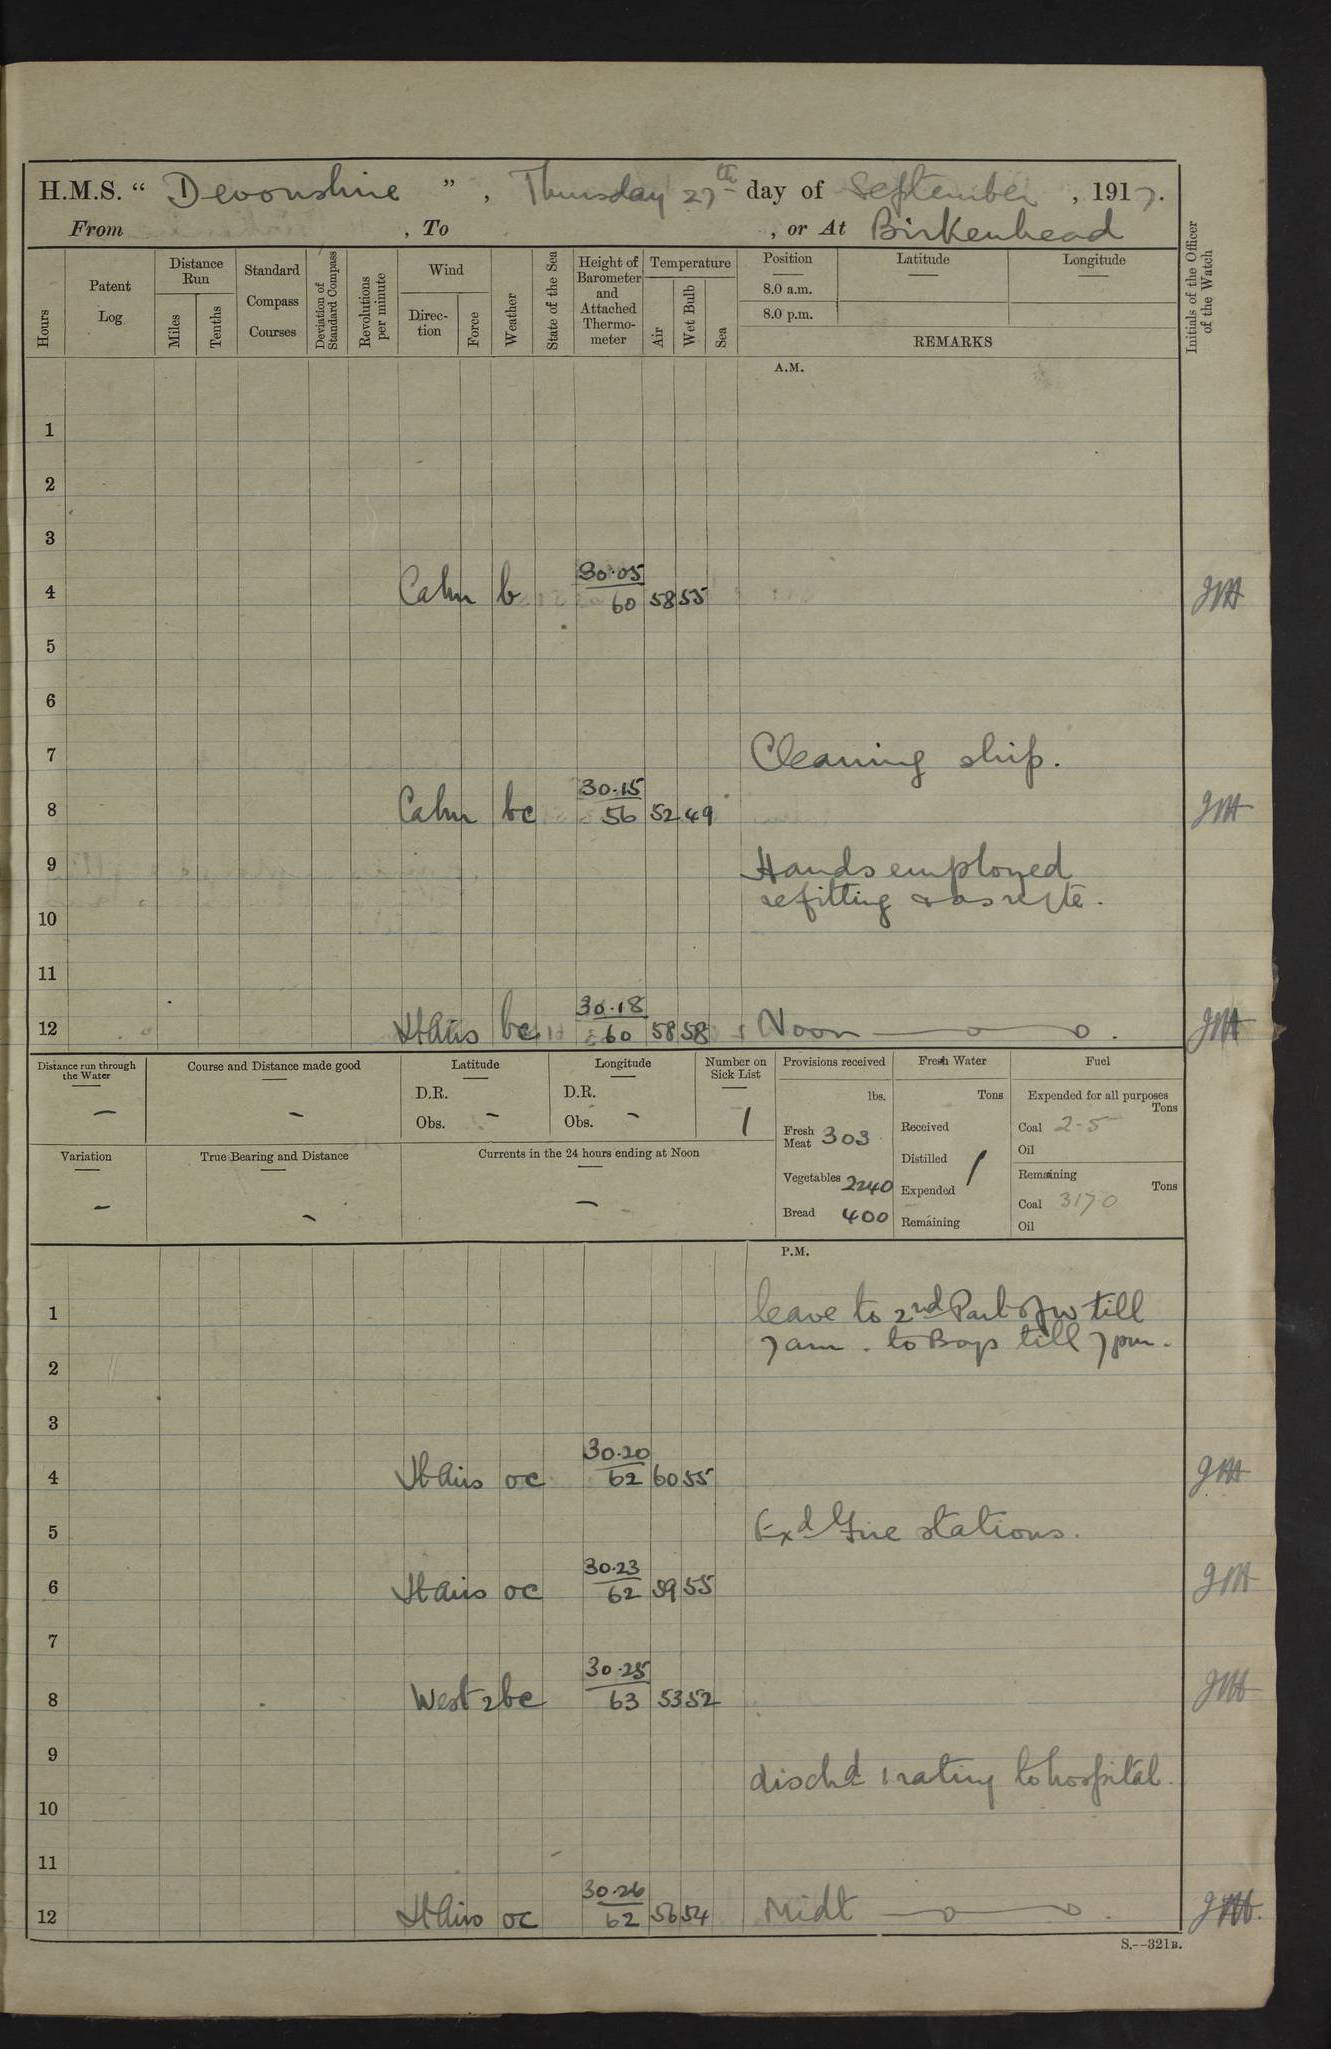 H.M.S. “ Devonshire ” , Thursday 27th day of September , 1917.
From , To , or At Birkenhead
Hours
Patent Log
Distance Run
Miles
Tenths
Standard Compass Courses
Deviation of Standard Compass
Revolutions per minute
Wind
Direction
Force
Weather
State of the Sea
Height of Barometer and Attached Thermometer
Temperature
Air
Wet Bulb
Sea
Position
8.0 a.m.
8.0 p.m.
Latitude
Longitude
REMARKS
Initials of the Officer of the Watch
A.M.
1
2
3
4 Calm b 30.05 60 58 55
5
6
7 Cleaning ship.
8 Calm bc 30.15 56 52 49
9 Hands employed
refitting & as reqte.
10
11
12 Lt airs bc 30.18 60 58 58 Noon
Distance run through the Water —
Course and Distance made good —
Latitude
D.R.
Obs. —
Longitude
D.R.
Obs. —
Number on Sick List
1
Variation —
True Bearing and Distance —
Currents in the 24 hours ending at Noon —
Provisions received
lbs.
Fresh Meat 303
Vegetables 2240
Bread 400
Fresh Water
Tons
Received
Distilled
Expended
Remaining
Fuel
Expended for all purposes
Tons
Coal 2-5
Oil
Remaining
Tons
Coal 3170
Oil
P.M.
1 leave to 2nd Part of W till
7am. to Boys till 7pm.
2
3
4 Lt airs oc 30.20 62 60 55
5 Exd Fire stations.
6 Lt airs oc 30.23 62 59 55
7
8 West 2 bc 30.25 63 53 52
9 dischd 1 rating to hospital.
10
11
12 Lt airs oc 30.26 62 56 54 Midt
S.--321B.